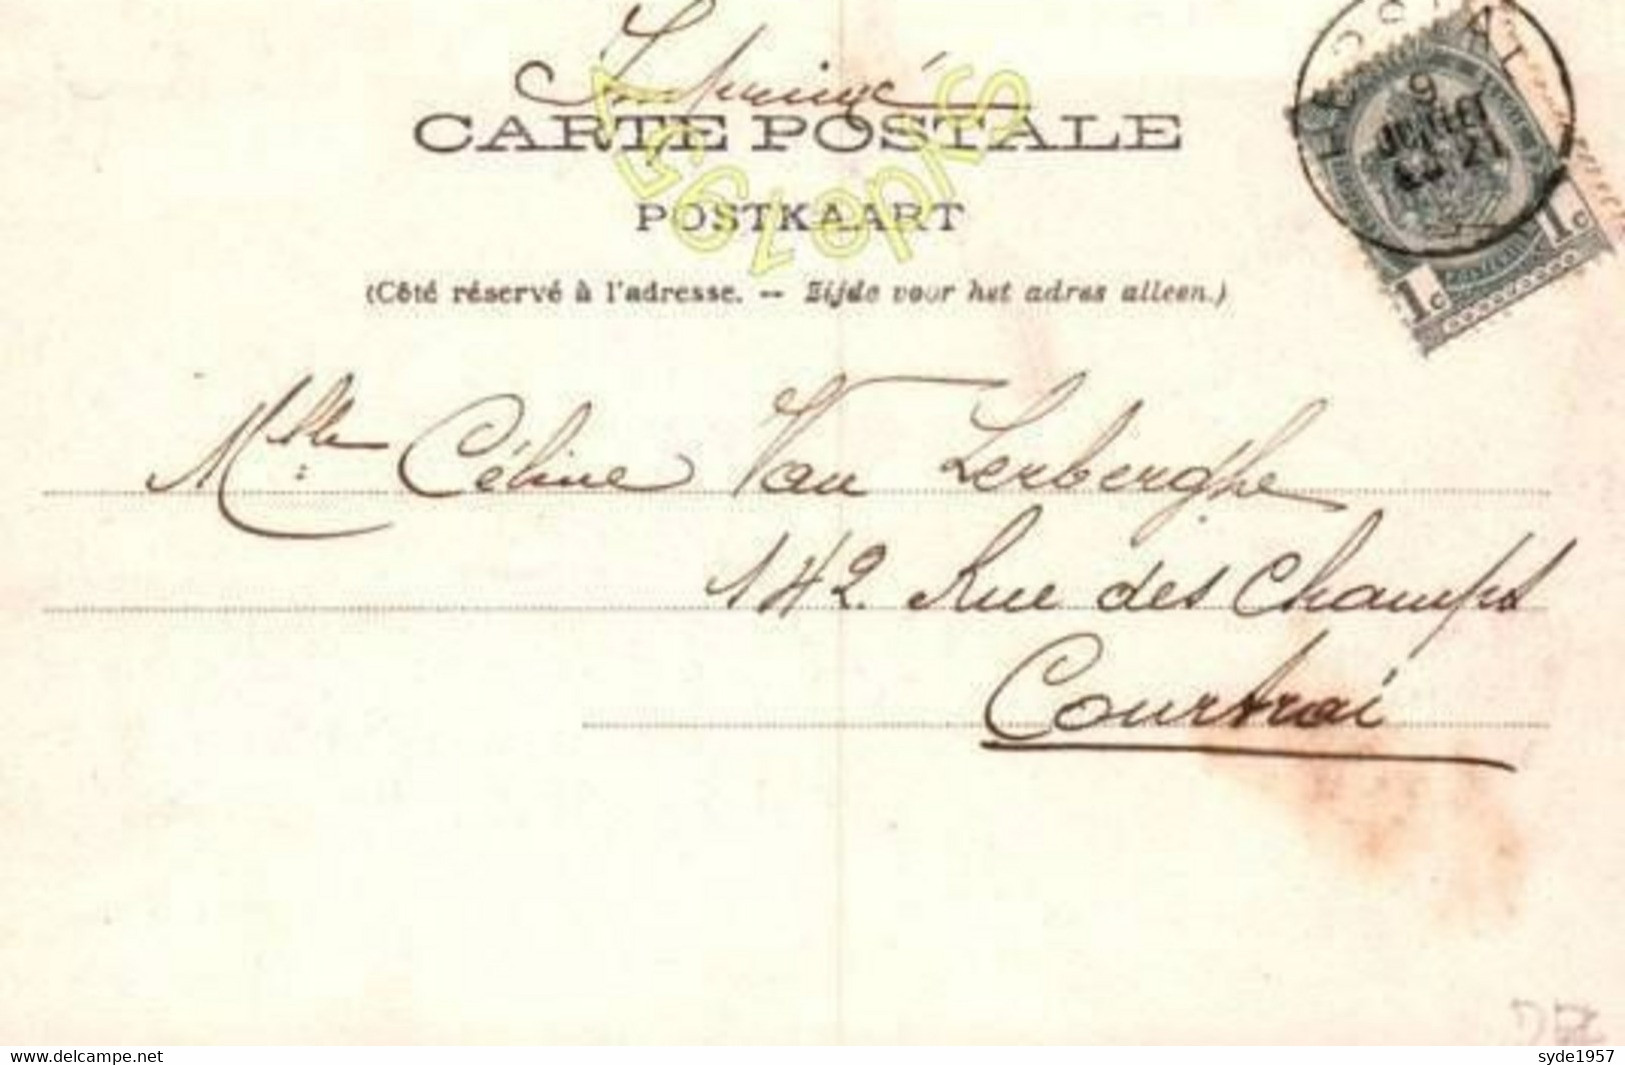 Imprimé
CARTE POSTALE
POSTKAART
(Côté réservé à l'adresse. — Zijde voor het adres alleen.)
syde1957
6
JUILLET
1c 1c
Mlle Céline Van Lerberghe
142. Rue des Champs
Courtrai
www.delcampe.net
syde1957